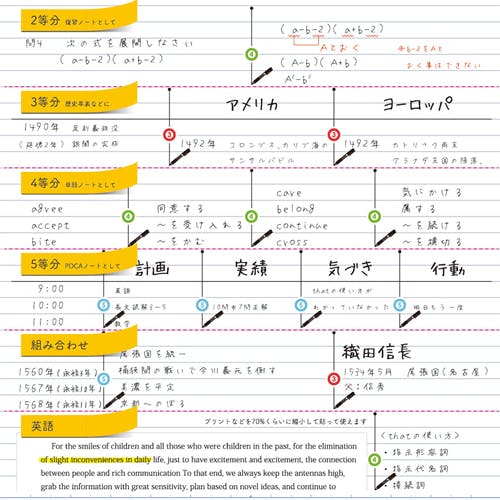 2等分 復習ノートとして
問4 次の式を展開しなさい
(a-b-2)(a+b-2)
4
(a-b-2)(a+b-2)
Aとおく
(A-b)(A+b)
A²-b²
※b-2をAと
おく事はできない
3等分 歴史年表などに
アメリカ
ヨーロッパ
1490年 足利義政没
(延徳2年)
3
1492年 コロンブス、カリブ海の
サンサルバドル
3
1492年 カトリック両王
グラナダ王国の陥落。
4等分 単語ノートとして
agree
accept
bite
4
同意する
〜を受け入れる
〜をかむ
cave
belong
continue
cross
4
気にかける
属する
〜を続ける
〜を横切る
5等分 PDCAノートとして
計画
実績
気づき
行動
9:00
10:00
11:00
英語
5
長文読解3-5
数学
5
10問中7問正解
5
thatの使い方が
わかっていなかった
5
明日もう一度
組み合わせ
1560年(永禄3年)
1567年(永禄10年)
1568年(永禄11年)
尾張国を統一
5
桶狭間の戦いで今川義元を倒す
美濃を平定
京都へのぼる
織田信長
3
1534年5月 尾張国(名古屋)
父:信秀
英語
プリントなどを70%くらいに縮小して貼って使えます
For the smiles of children and all those who were children in the past, for the elimination
of slight inconveniences in daily life, just to have excitement and excitement, the connection
between people and rich communication To that end, we always keep the antennas high,
grab the information with great sensitivity, plan based on novel ideas, and continue to
4
〈thatの使い方〉
・指示形容詞
・指示代名詞
・接続詞